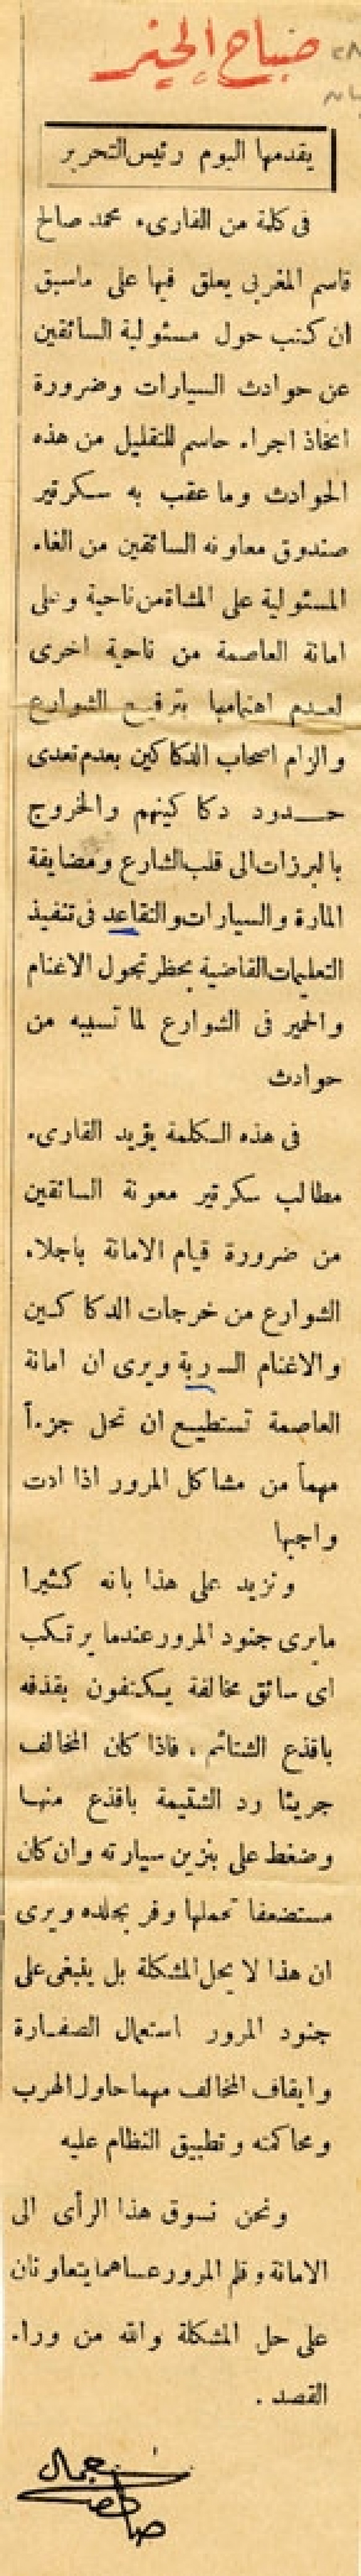 صباح الخير
يقدمها اليوم رئيس التحرير
فى كلمة من القارىء محمد صالح
قاسم المغربى يعلق فيها على ماسبق
ان كتب حول مسئولية السائقين
عن حوادث السيارات وضرورة
اتخاذ اجراء حاسم للتقليل من هذه
الحوادث وما عقب به سكرتير
صندوق معاونه السائقين من القاء
المسئولية على المشاة من ناحية وعلى
امانة العاصمة من ناحية اخرى
لعدم اهتمامها بترقيع الشوارع
والزام اصحاب الدكاكين بعدم تعدى
حدود دكاكينهم والخروج
بالبرزات الى قلب الشارع ومضايقة
المارة والسيارات والتقاعد فى تنفيذ
التعليمات القاضية بحظر تجول الاغنام
والحمير فى الشوارع لما تسببه من
حوادث
فى هذه الكلمة يؤيد القارىء
مطالب سكرتير معونة السائقين
من ضرورة قيام الامانة باجلاء
الشوارع من خرجات الدكاكين
والاغنام السربة ويرى ان امانة
العاصمة تستطيع ان تحل جزءاً
مهماً من مشاكل المرور اذا ادت
واجبها
ونزيد على هذا بانه كثيرا
مايرى جنود المرور عندما يرتكب
اى سائق مخالفة يكتفون بقذفه
باقذع الشتائم ، فاذا كان المخالف
جريئا رد الشتيمة باقذع منها
وضغط على بنزين سيارته وان كان
مستضعفا تحملها وفر بجلده ويرى
ان هذا لا يحل المشكلة بل ينبغى على
جنود المرور استعمال الصفارة
وايقاف المخالف مهما حاول الهرب
ومحاكمته وتطبيق النظام عليه
ونحن نسوق هذا الرأى الى
الامانة وقلم المرور عساهما يتعاونان
على حل المشكلة والله من وراء
القصد .